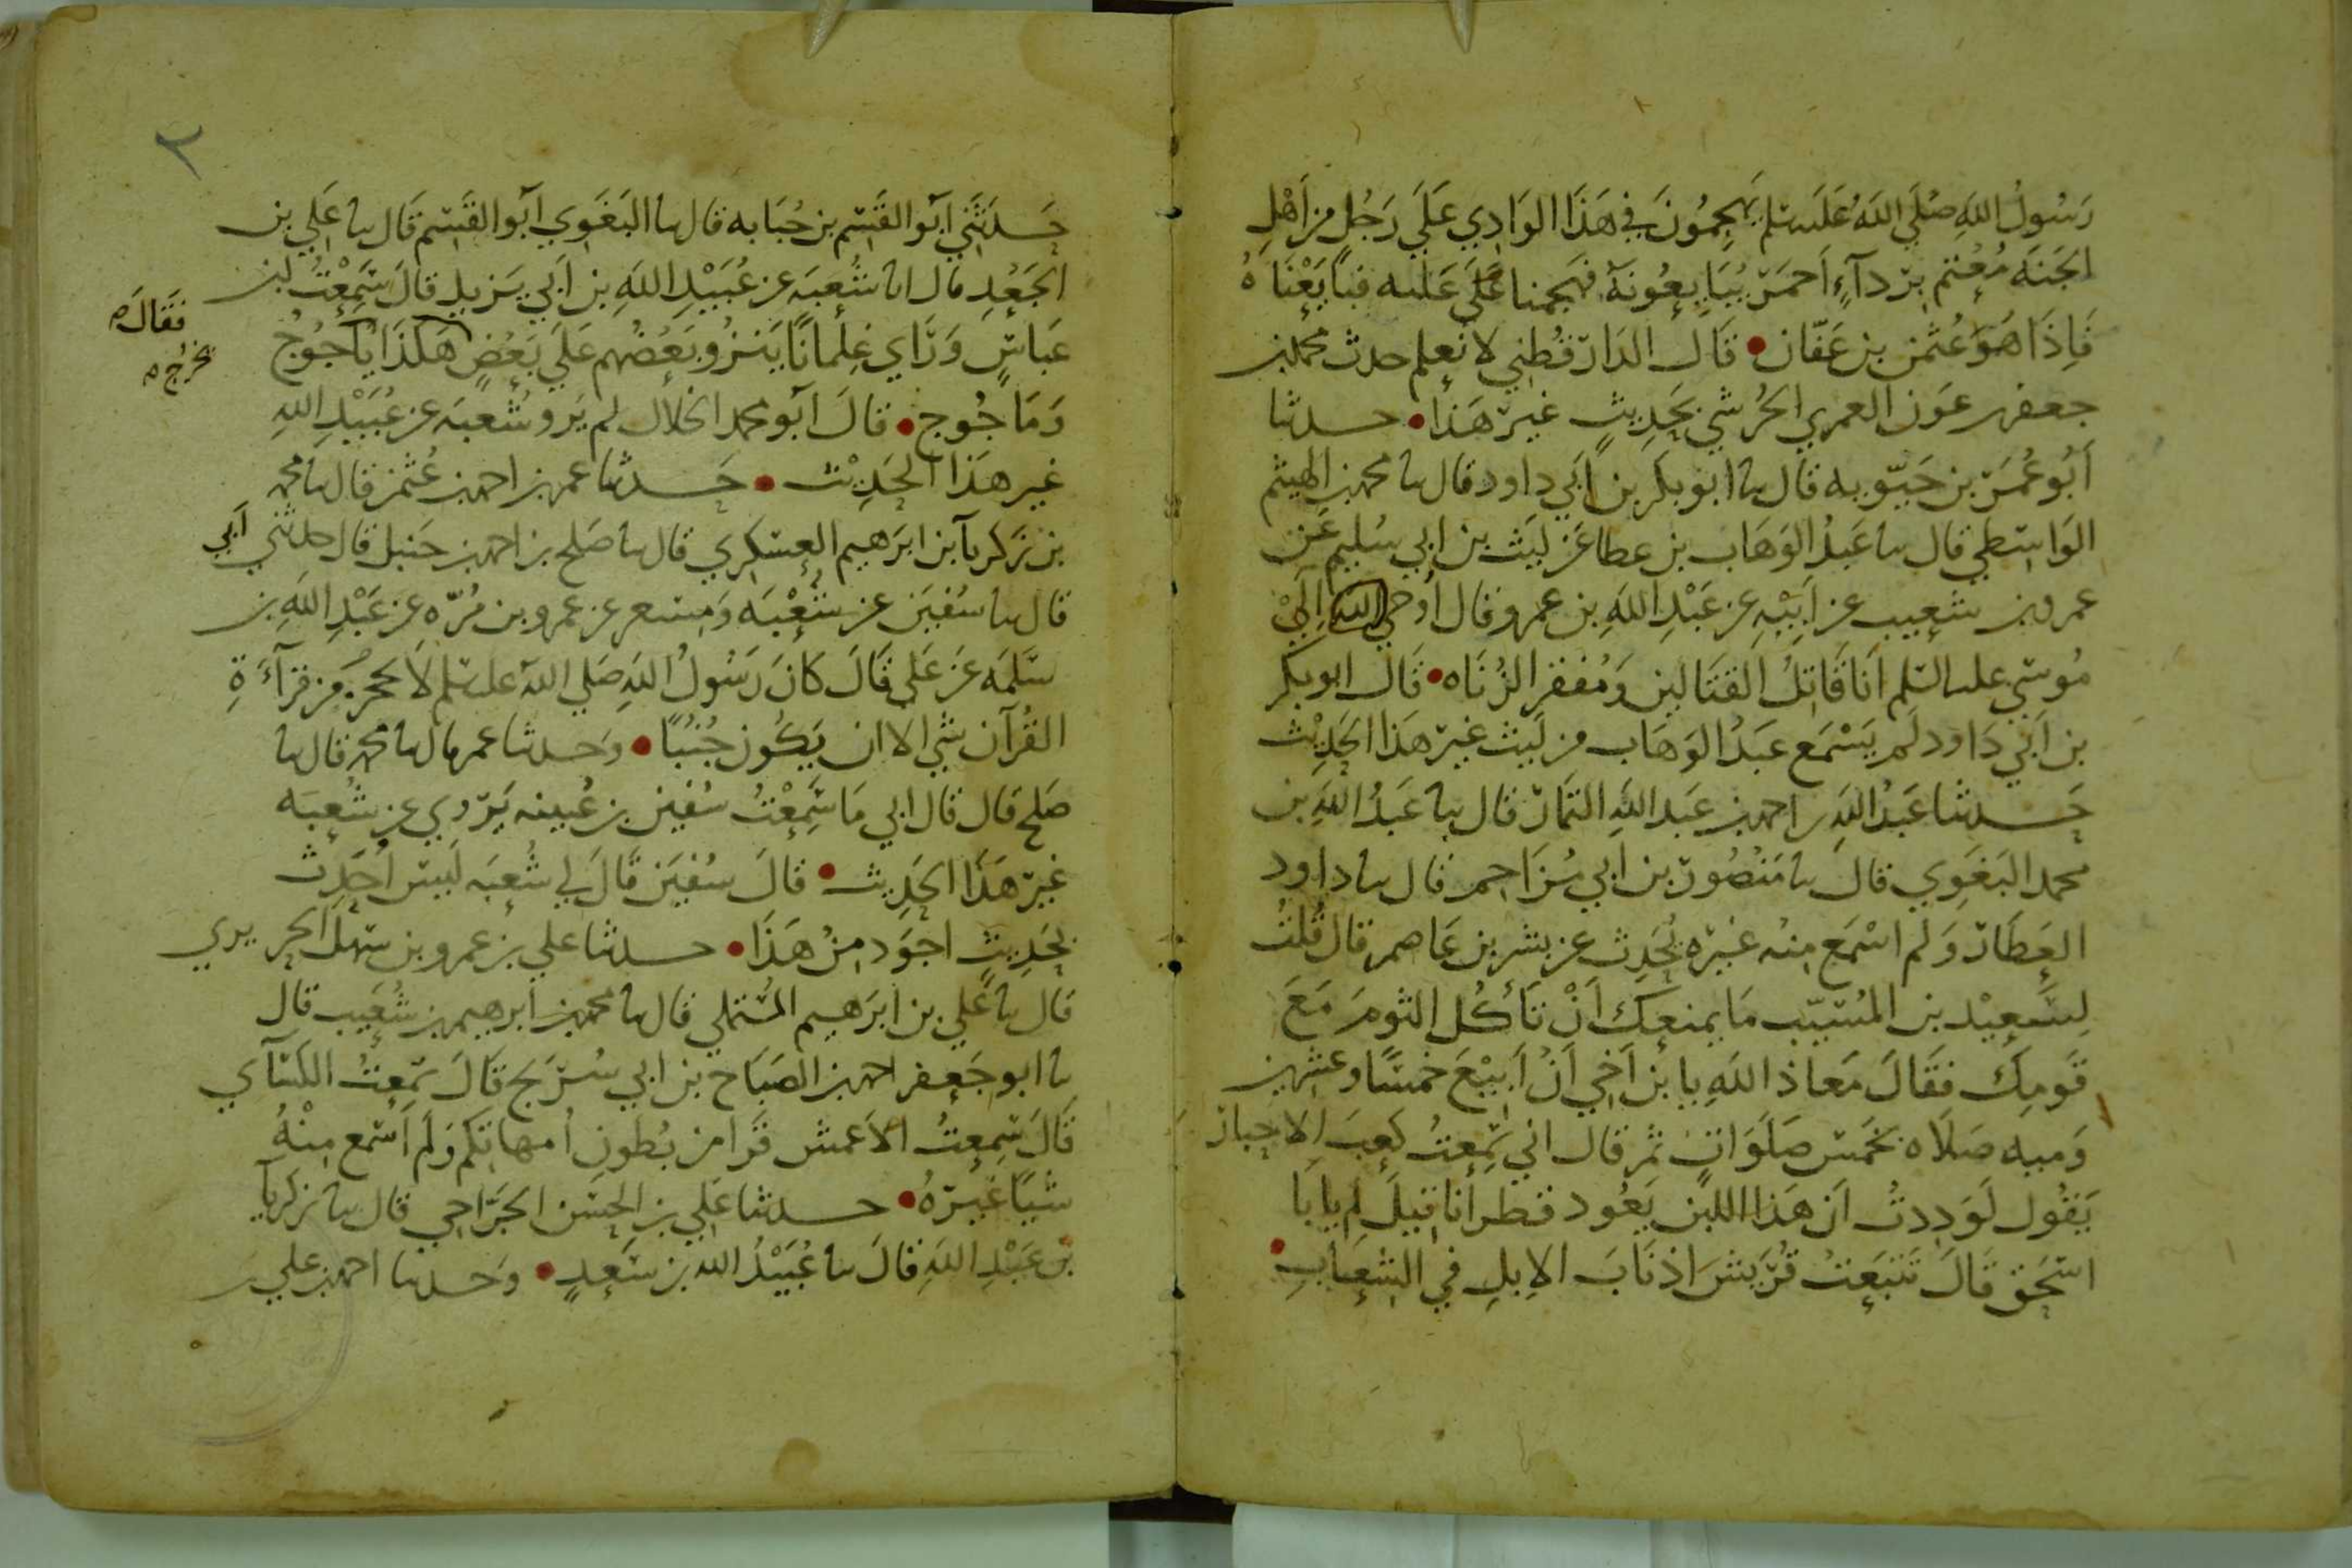 رَسُولُ اللَّهِ صَلَّى اللَّهُ عَلَيه سَلم يَهجِمُونَ في هَذَا الوَادِي عَلَى رَجُلٍ مِن أَهْلِ
الجَنَّه مُعْتَمٍ بِرِدآءٍ أَحمَرَ يُبَايِعُونَهُ فهَجَمنا عَلَى عَليه فبَايَعْنَاهُ
فَإِذَا هُوَ عُثمن بن عَفّان • قَال الدَارقُطني لا نَعلم حدث محمد بن
جعفر عَون العمري الحُرشي بحَدِيثٍ غيرَ هَذا • حدثنا
أَبُو عُمَرَ بن حَيّويه قال نا ابو بَكر بن أَبي داود قال نا محمد بن الهيثم
الوَاسِطي قال نا عَبدُ الوَهَاب بن عطا عَن لَيَث بن ابي سُليم عَن
عمرو بن شعيب عن أَبيْهِ عن عَبْدِ اللَّهِ بن عمرو قال أوحي الله إِلَى
مُوسَى عليه السَلم أَنَا قَاتِلُ القَتَالين وَمُفقر الزُنَاه • قَال ابو بكر
بن أَبي دَاود لَم يَسْمَع عَبدُ الوَهَاب من لَيَث غَيرَ هَذا الحَدِيْث
حَدثنا عَبدُ اللَّهِ بن احمد بن عَبد اللَّهِ التمَّار قال نا عَبدُ اللَّهِ بن
محمد البَغَوِي قال نا مَنصُور بن أبي مُزَاحِم قال نا داود
العَطَار وَلم اسْمَع مِنه غيرَه يُحَدِث عن بشر بن عَاصم قال قُلتُ
لِسَعِيْد بن المُسَيّب مَا يمنعك أَنْ تَأكُل الثوم مَعَ
قَومِك فقَالَ مَعاذ اللَّهِ يا بنَ أَخِي أَنْ أَبِيْعَ خَمسًا وعشرين
صَلَاه بخَمس صَلَوَاتٍ ثم قال اني سَمِعتُ كَعبَ الاحبار
يَقُول لَوَدِدتُ ان هَذا اللبن يَعُود قطرانا قِيلَ لِم يا بَا
اسحَق قَالَ تَتبَعَتْ قُرَيش اذنَابَ الإبلِ في الشِعَابِ •
٢
حَدثَني أَبو القَسِم بن حُبَابه قال نا البَغَوي أبو القَسِم قَال نا عَلي بن
الجَعْدِ قال انا شُعبَه عن عُبَيْدِ اللَّهِ بن أبي يَزيد قالَ سَمِعْتُ ابن
عَباسٍ وَرَأي غِلمانًا يَنزُو بَعْضُهم عَلَى بَعضٍ هَكذا يَأجُوجُ
فقَالَ
يخرُج
وَمَاجُوج • قَالَ أبو محمد الخلال لم يَرو شُعبَه عن عُبَيْدِ اللَّهِ
غير هَذا الحَدِيْث • حَدثنا عمر بن احمد بن عُثمن قال نا محمد
بن زكريآ بن ابرَهيم العسكري قال نا صَلح بن احمد بن حَنبل قال حدثني أَبي
قال نا سُفين عن شُعْبَه وَمِسعر عن عمرو بن مُرّه عن عَبْدِ اللَّهِ بن
سَلَمه عَن عَلي قَالَ كانَ رَسُولُ اللَّهِ صَلى اللَّه عليه سَلم لَا يحجزهُ من قرآءَةِ
القُرآن شي الا ان يَكُون جُنُبًا • وَحدثنا عمر قال نا محمد قال نا
صَلح قال قال ابي مَا سَمِعْتُ سُفين بن عُيينه يَروي عن شُعبَه
غيرَ هَذا الحَدِيث • قالَ سُفيَن قَالَ لي شُعبَه لَيس أُحَدِث
بحَدِيثٍ اجوَد مِنْ هَذَا • حدثنا علي بن عمرو بن سَهل الحريري
قال نا عَلي بن ابرَهيم المُستَملي قال نا محمد بن ابرهيم بن شُعَيب قال
نا ابو جَعفر احمد بن الصَبَاح بن ابي سُرَيج قَالَ سَمِعتُ الكسآي
قَالَ سَمِعتُ الاَعمش قَرا من بُطونِ أُمهاتكم وَلَم أَسْمع مِنْهُ
شَيًا غَيرَهُ • حدثنا عَلي بن الحِسَن الجَرّاحي قال نا زكريآ
بن عَبْدِ اللَّهِ قَالَ نا عُبَيْدُ الله بن سَعدٍ • وَحدثنا احمد بن علي بن